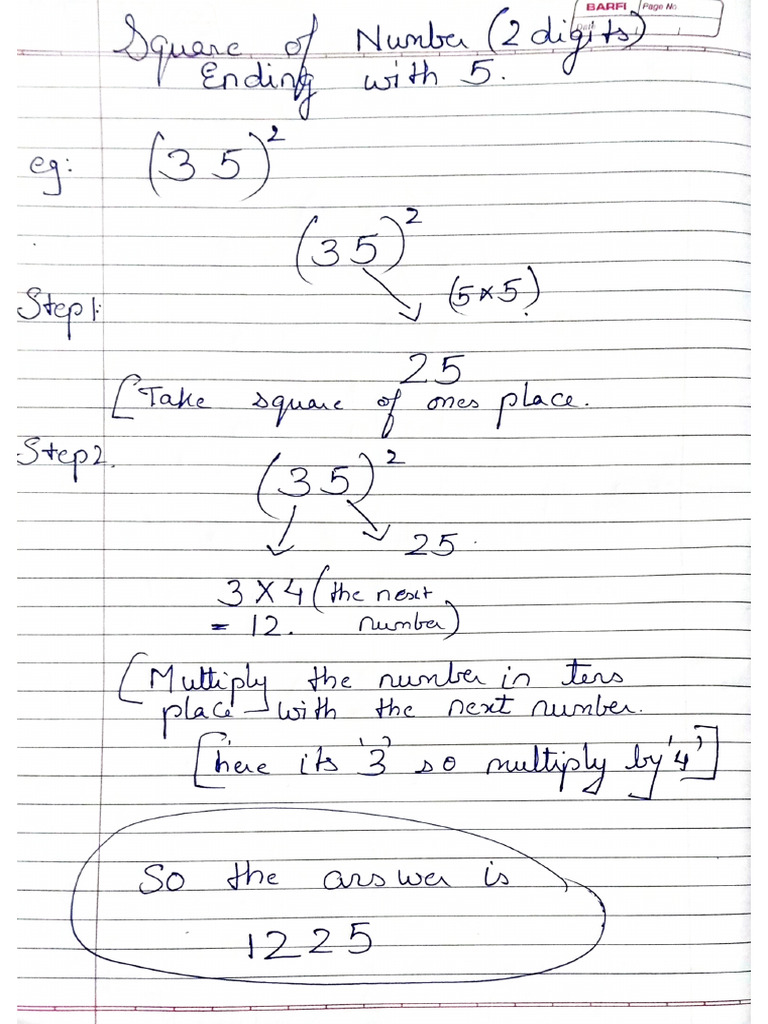 BARFI Page No
Square of Number (2 digits)
Ending with 5.
eg: (35)²
(35)²
Step 1:
(5×5)
25
[Take square of ones place.
Step 2.
(35)²
25
3 X 4 (the next
= 12. number)
[Multiply the number in tens
place with the next number.
[here its '3' so multiply by '4']
So the answer is
1225